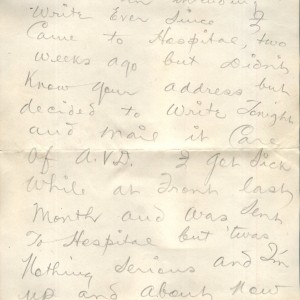 Write Ever Since I
Came to Hospital, two
Weeks ago but Didn't
Know your address but
decided to Write Tonight
and mail it Care
Of A.V.D. I get Sick
While at Front last
Month and was Sent
To Hospital but 'twas
Nothing Serious and I'm
up and about Now